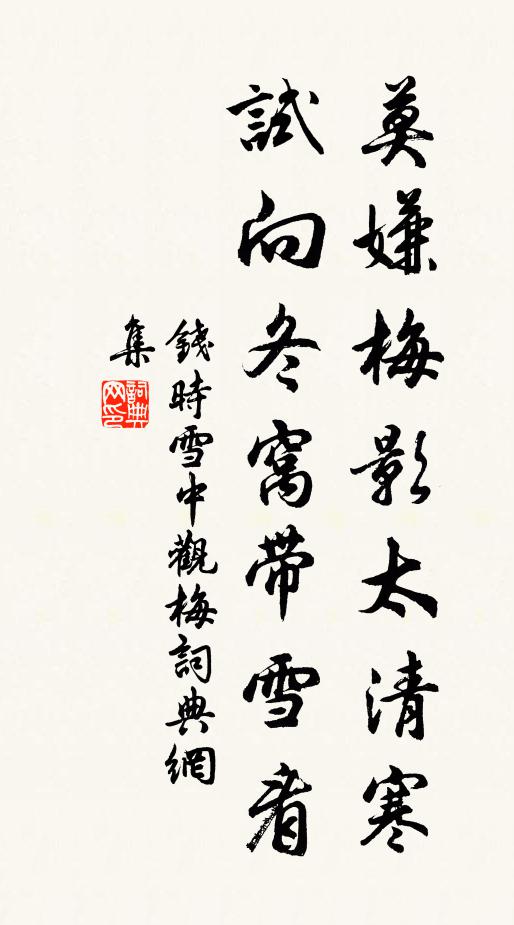 莫嫌梅影太清寒
試向冬窩帶雪看
錢時雪中觀梅詞典網
集
詞典網印